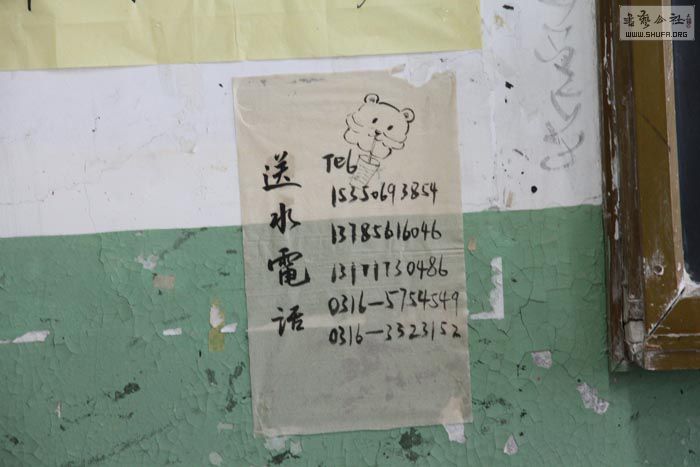 書藝公社
WWW.SHUFA.ORG
送水電话
Tel
15350693854
13785616046
13171730486
0316-5754549
0316-3323152